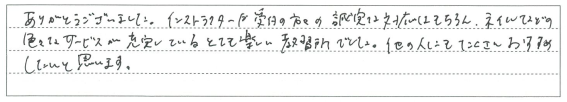 ありがとうございました。インストラクターや受付の方々の誠実な対応はもちろん、ネイルなどの
色々なサービスが充実しているとても楽しい教習所でした。他の人にもたくさんおすすめ
したいと思います。